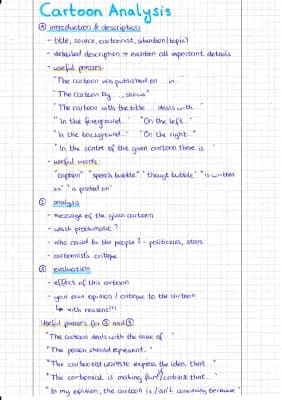 Cartoon Analysis
① introduction & description
- title, source, cartoonist, situation (topic)
- detailed description → mention all important details
- useful phrases:
"The cartoon was published on ... in..
"The cartoon by ... shows"
"The cartoon with the title ... deals with "
"In the foreground.." "On the left.."
"In the background.." "On the right.."
"In the centre of the given cartoon there is
- useful words:
"caption" "speech bubble" "thought bubble" "is written
on" "is printed on"
② analysis
- message of the given cartoon
- which problematic?
- who could be the people? - politicians, stars
- cartoonists critique
③ evaluation
- effect of this cartoon
- your own opinion / critique to the cartoon
↳ with reasons!!!
Useful phrases for ② and ③
"The cartoon deals with the issue of.. "
"The person should represent.."
"The cartoonist wants to express the idea that.."
"The cartoonist is making fun / critisis that.."
"In my opinion, the cartoon is / isn't convincing because"